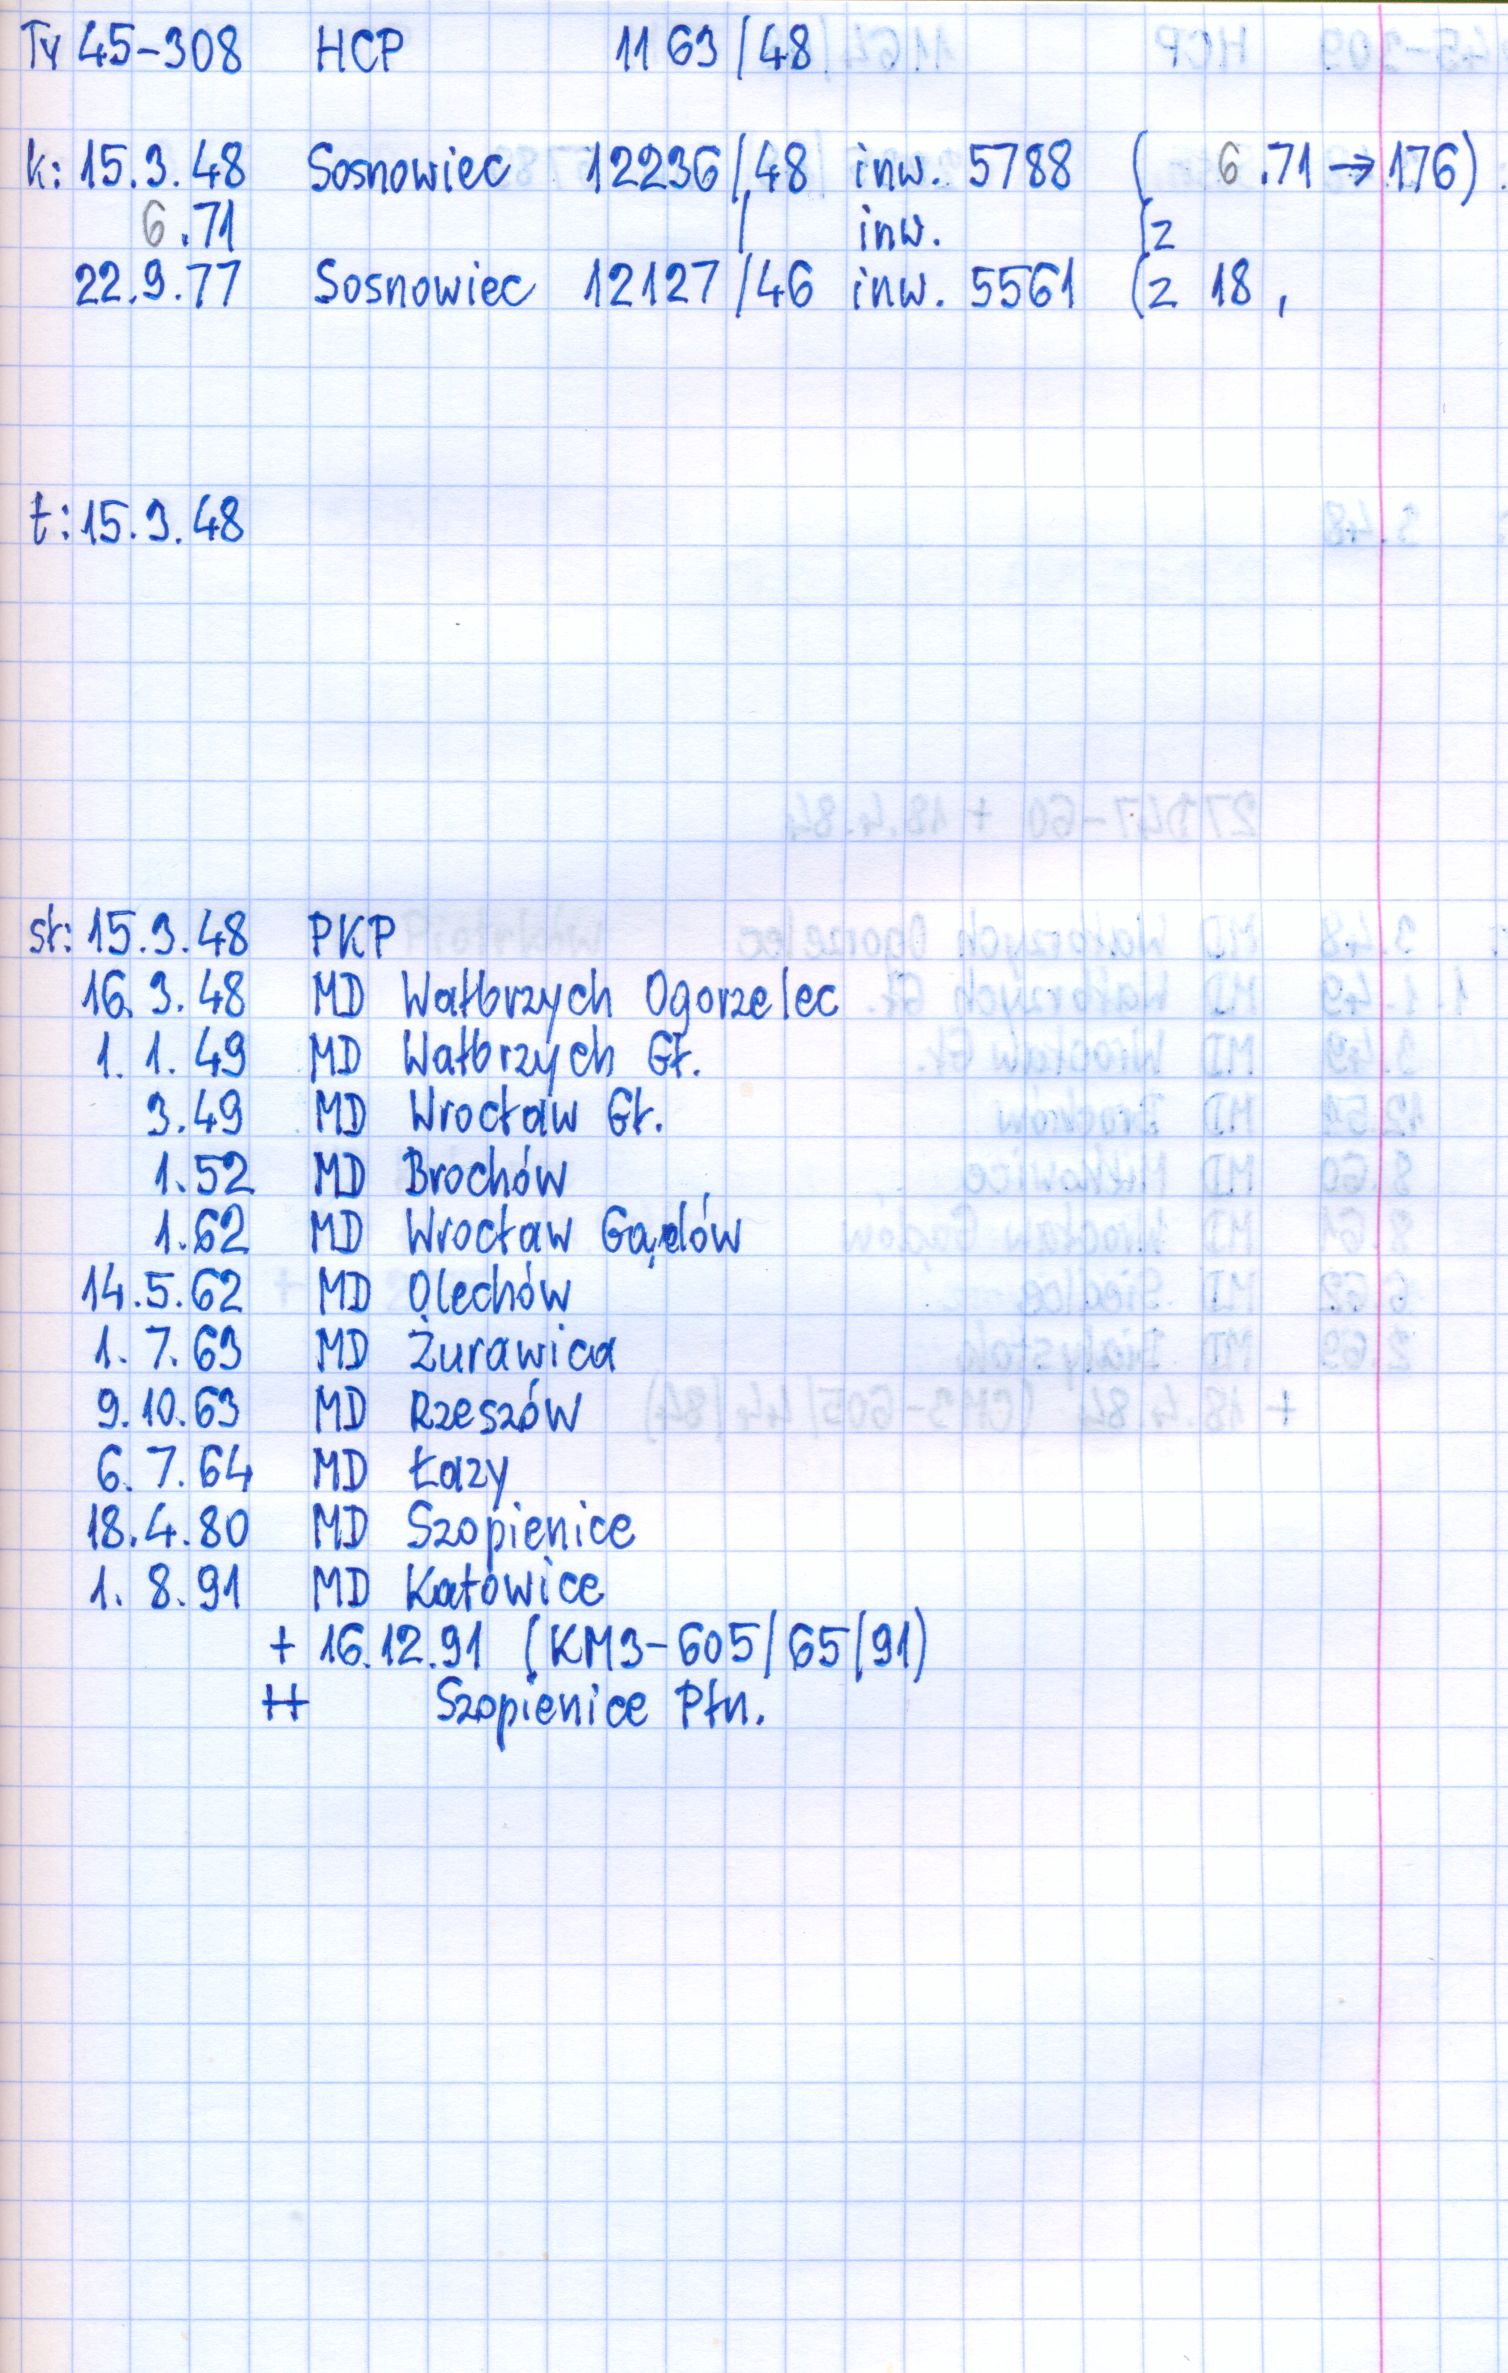 Ty 45-308 HCP 1163/48
k: 15.3.48 Sosnowiec 12236/48 inw. 5788 ( 6.71 → 176)
6.71 / inw. (z
22.9.77 Sosnowiec 12127/46 inw. 5561 (z 18,
t: 15.3.48
st: 15.3.48 PKP
16.3.48 MD Wałbrzych Ogorzelec
1.1.49 MD Wałbrzych Gł.
3.49 MD Wrocław Gł.
1.52 MD Brochów
1.62 MD Wrocław Gądów
14.5.62 MD Olechów
1.7.63 MD Żurawica
9.10.63 MD Rzeszów
6.7.64 MD Łazy
18.4.80 MD Szopienice
1.8.91 MD Katowice
+ 16.12.91 (KM3-605/65/91)
++ Szopienice Płn.